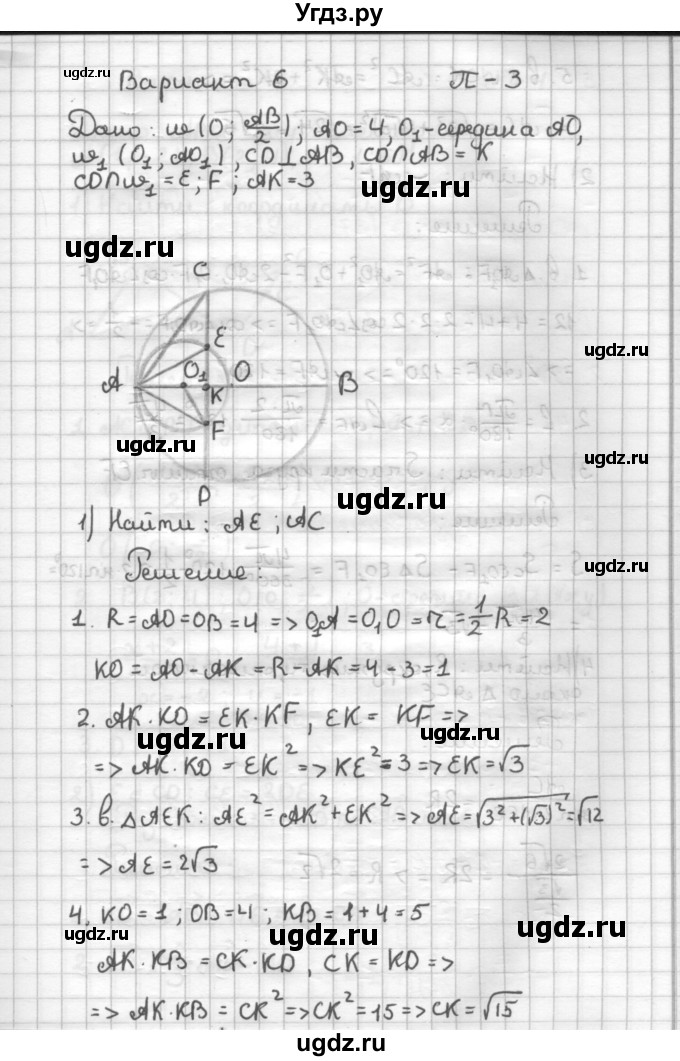 Угдз.ру
ugdz.ru
Вариант 6 П-3
Дано: w(O; AB/2); AO=4, O₁-середина AO,
w₁ (O₁; AO₁), CD⊥AB, CD∩AB=K
CD∩w₁=E; F; AK=3
ugdz.ru
ugdz.ru
ugdz.ru
C
E
A O₁ O B
K
ugdz.ru
F
ugdz.ru
ugdz.ru
D
ugdz.ru
1) Найти: AE; AC
Решение:
ugdz.ru
1. R=AO=OB=4 => O₁A=O₁O=r=1/2 R=2
KO=AO-AK=R-AK=4-3=1
2. AK·KO=EK·KF, EK=KF =>
ugdz.ru
ugdz.ru
=> AK·KO=EK² => KE²=3 => EK=√3
3. в ΔAEK: AE²=AK²+EK² => AE=√(3²+(√3)²)=√12
ugdz.ru
=> AE=2√3
4. KO=1; OB=4; KB=1+4=5
ugdz.ru
ugdz.ru
ugdz.ru
AK·KB=CK·KD, CK=KD =>
=> AK·KB=CK² => CK²=15 => CK=√15
ugdz.ru
ugdz.ru